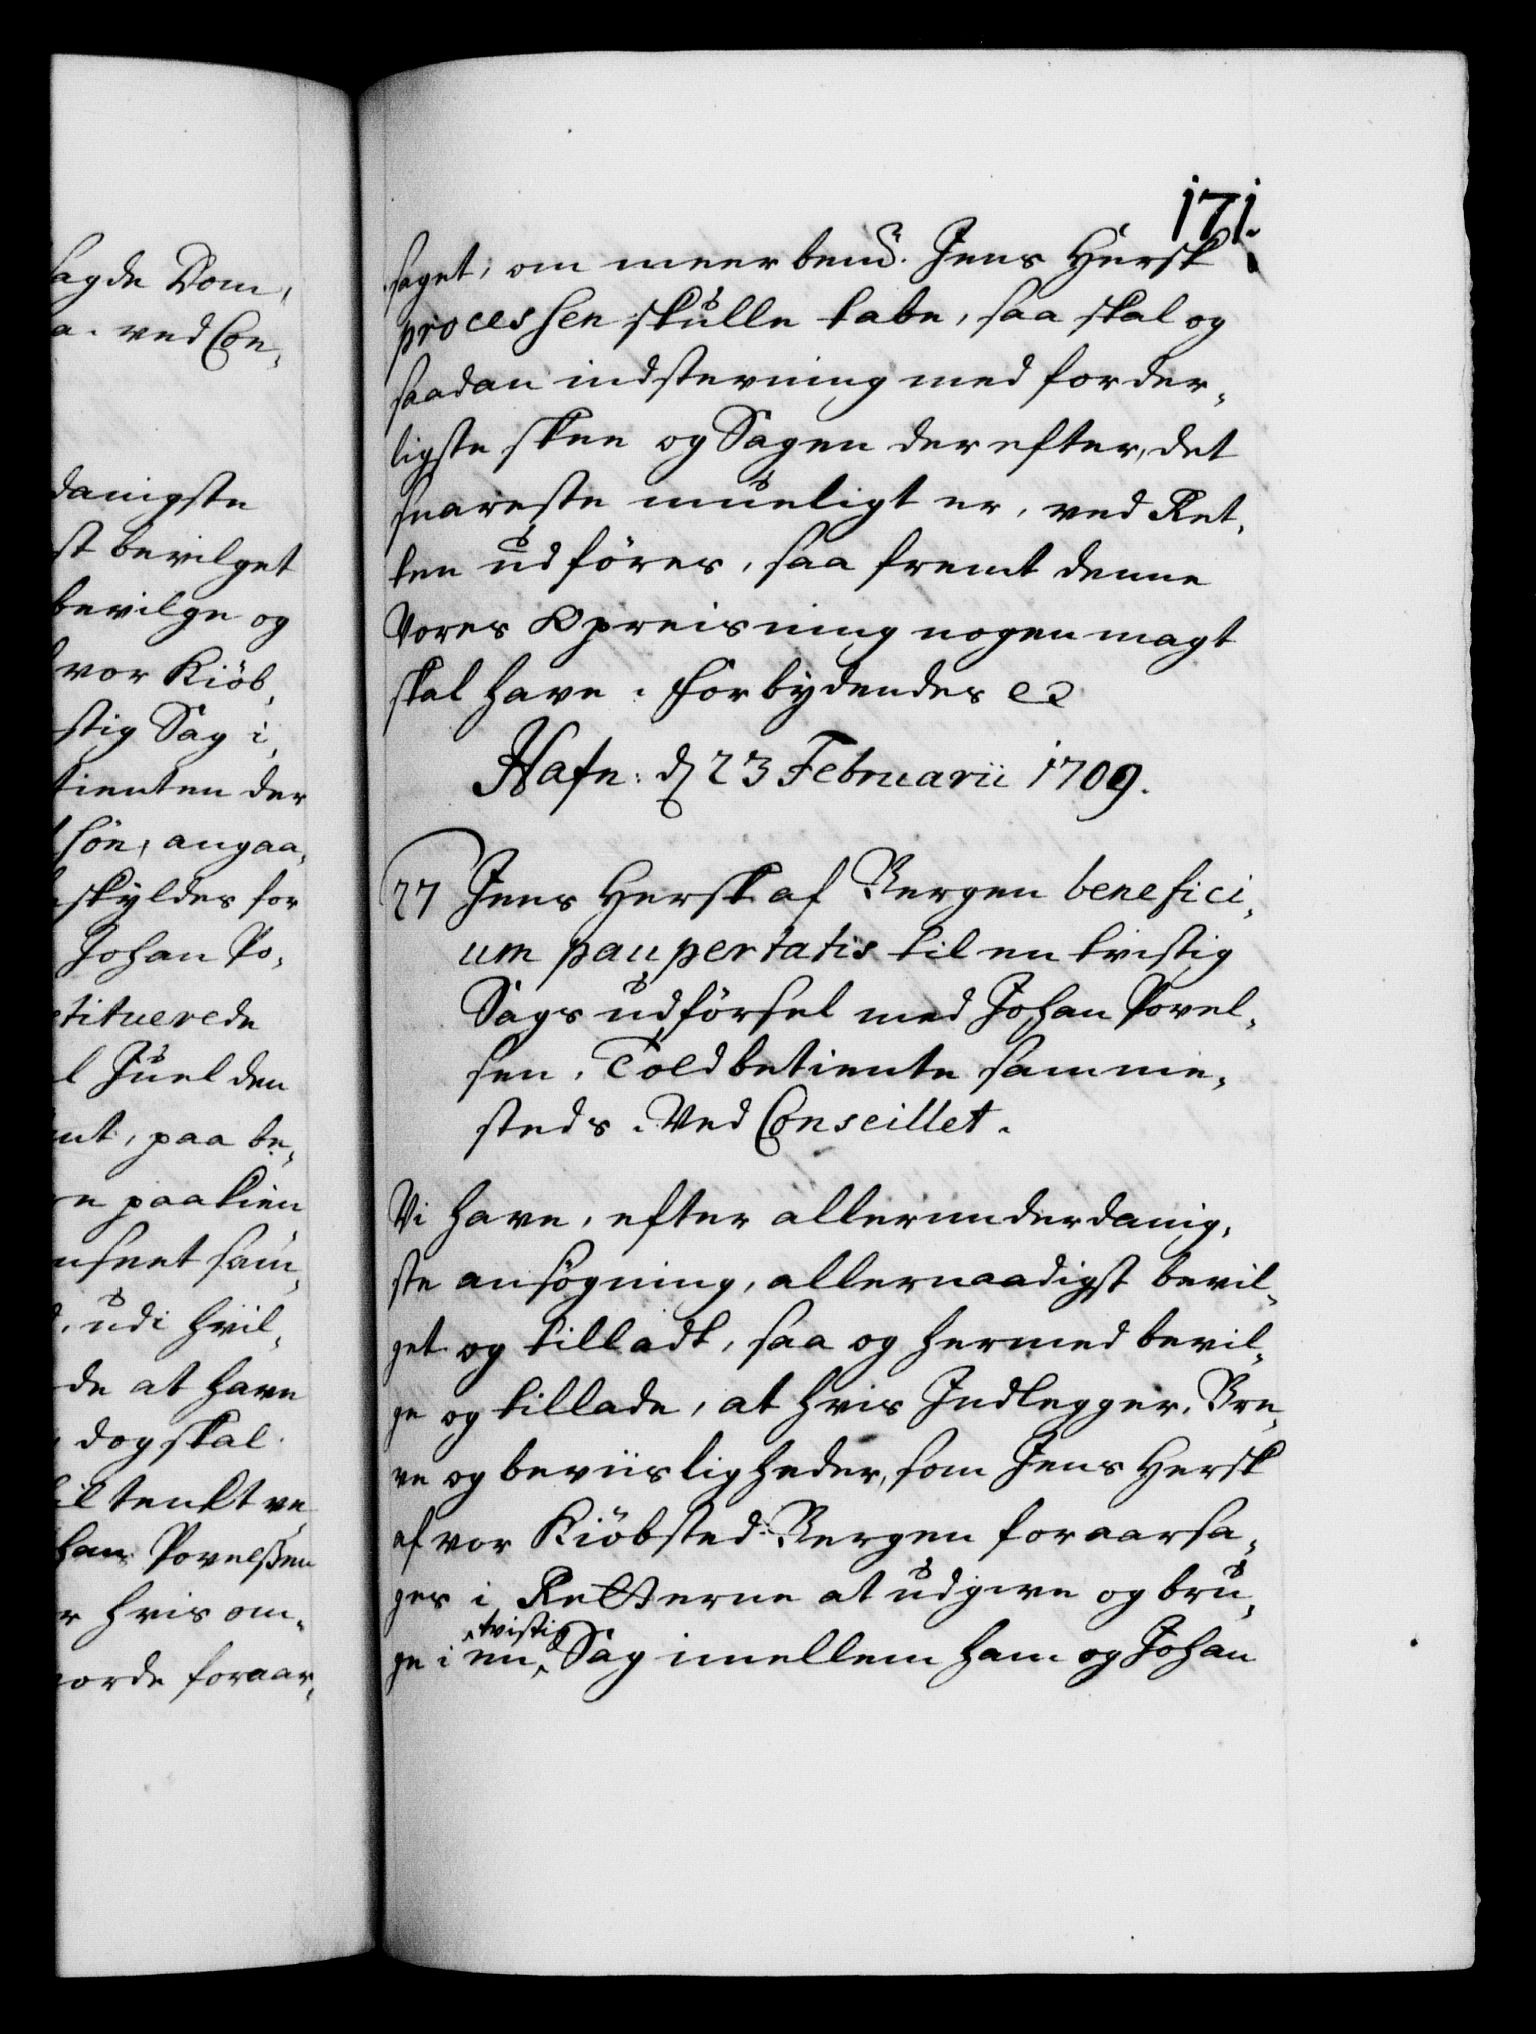 sagde Dom,
a. ved Con-
danigste
st bevilget
bevilge og
vor Kiöb-
stig Sag i
tienten der
sön, angaa-
skyldes for
Johan Po-
stituerede
l Juel den
nt, paa be-
e paakien
nseet saa
udi hvil-
de at have
dog skal
til tenkt ve
han Povelssen
r hvis om-
orde foraar-
171.
saget, om meer bemd. Jens Hersk
processen skulle tabe, saa skal og
saadan indstevning med forder-
ligste skee og Sagen der efter, det
snareste mueligt er, ved Ret-
ten udföres, saa fremt denne
Vores Opreisning nogen magt
skal have. Forbydendes etc
Hafn: d 23 Februarii 1709.
27 Jens Hersk af Bergen benefici-
um paupertatis til en tvistig
Sags udförsel med Johan Povel-
sen, Toldbetiente samme-
steds. Ved Conseillet.
Vi have, efter allerunderdanig-
ste ansögning, allernaadigst bevil-
get og tilladt, saa og hermed bevil-
ge og tillade, at hvis Indlegger, Bre-
ve og beviisligheder, som Jens Hersk
af vor Kiöbsted Bergen foraarsa-
ges i Retterne at udgive og bru-
tvistig
ge i en Sag imellem ham og Johan